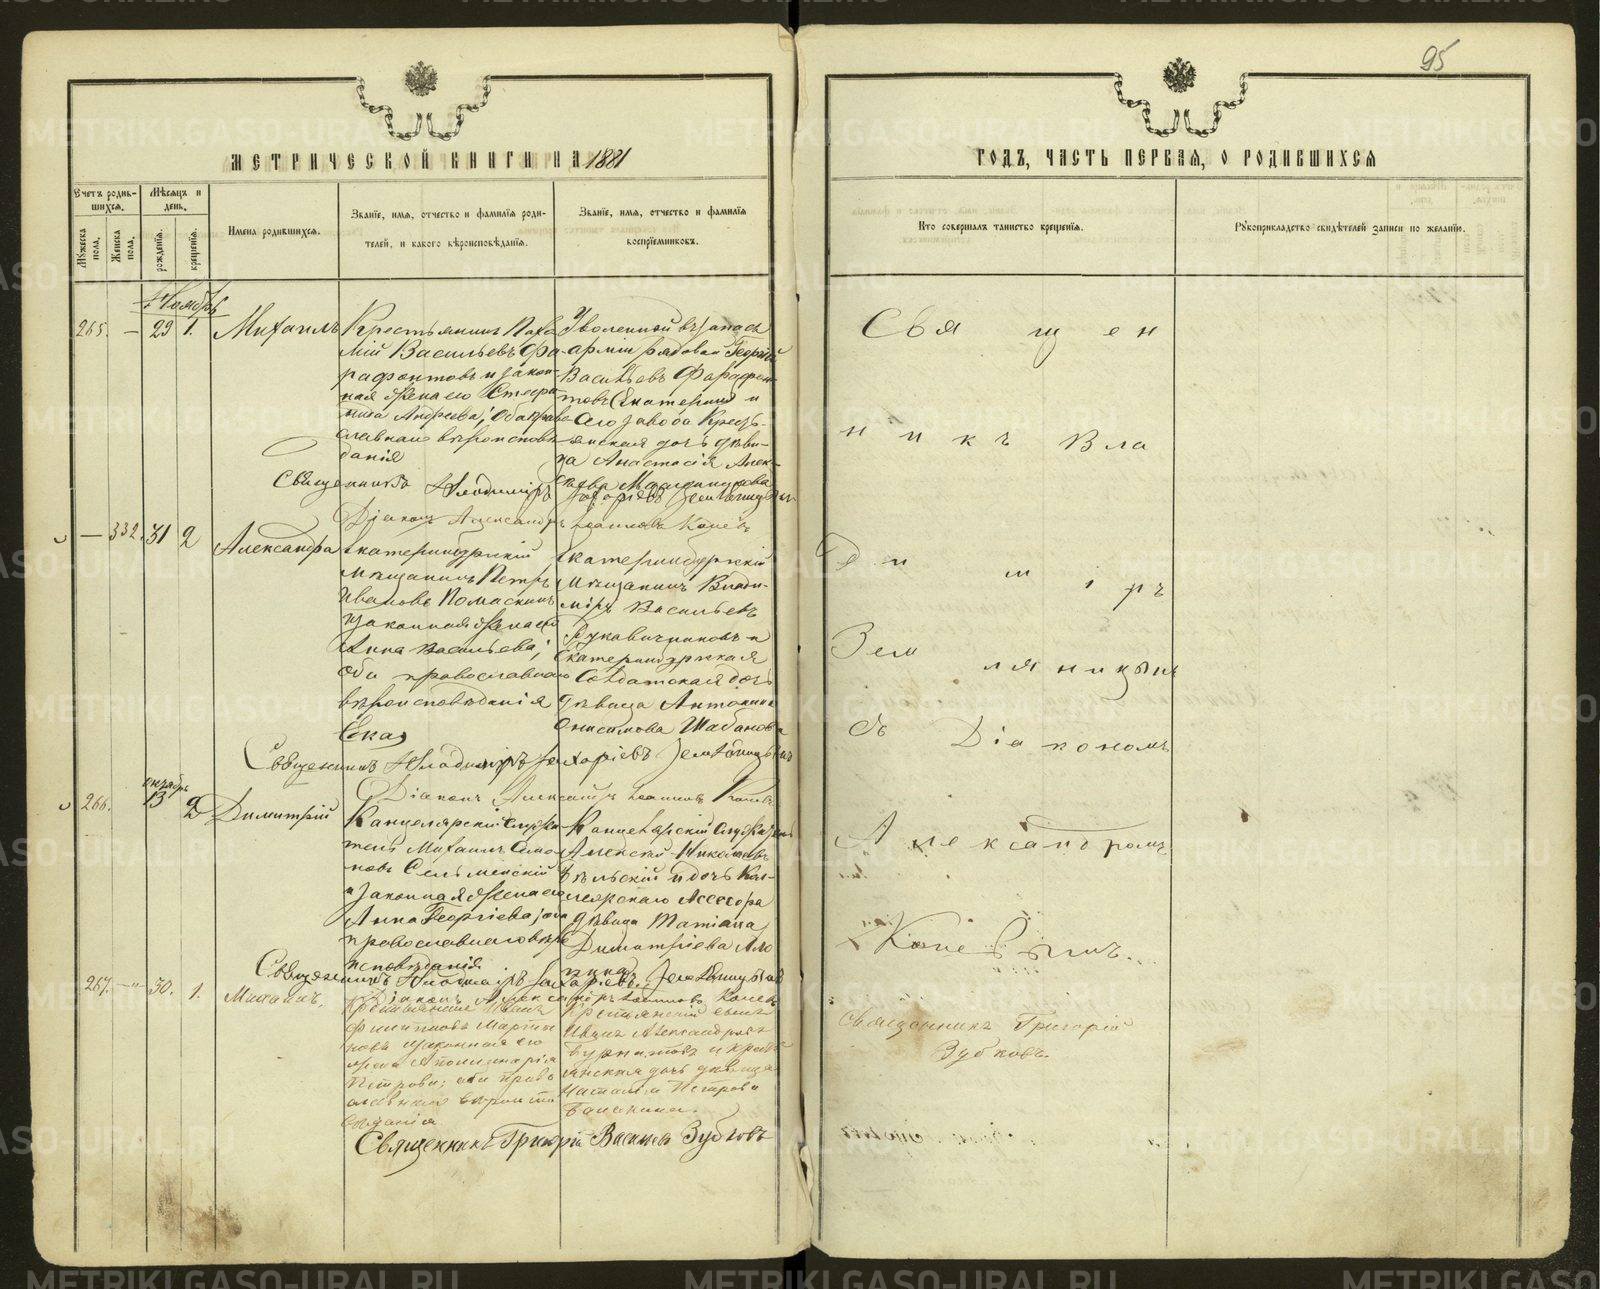 95
МЕТРИЧЕСКОЙ КНИГИ НА 1881
ГОДЪ, ЧАСТЬ ПЕРВАЯ, О РОДИВШИХСЯ
Счетъ родившихся.
Мужеска пола.
Женска пола.
Мѣсяцъ и день.
рожденія.
крещенія.
Имена родившихся.
Званіе, имя, отчество и фамилія родителей, и какого вѣроисповѣданія.
Званіе, имя, отчество и фамилія воспріемниковъ.
Кто совершалъ таинство крещенія.
Рукоприкладство свидѣтелей записи по желанію.
Ноябрь
265. — 29 1. Михаилъ
Крестьянинъ Пахо
мій Васильевъ Фа-
рафонтовъ и закон-
ная жена его Стефа
нида Андреева; оба право
славнаго вѣроисповѣ
данія
Уволенной въ запасъ
арміи рядовой Георгій
Васильевъ Фарафон
товъ Екатерин и
его завода Кресть-
янская дочь дѣви-
ца Анастасія Алек-
Священникъ Владиміръ Захаріевъ Земляницынъ
Діаконъ Александръ Іоанновъ Копевъ
— 332. 31 2 Александра
Екатеринбургскій
мѣщанинъ Петръ
Ивановъ Помаскинъ
и законная жена его
Анна Васильева;
оба православнаго
вѣроисповѣданія
Екатеринбургскій
мѣщанинъ Влади-
міръ Васильевъ
Рукавичниковъ и
Екатеринбургская
Солдатская дочь
дѣвица Антонина
Онисимова Шабанова
Священникъ Владиміръ Захаріевъ Земляницынъ
Діаконъ Александръ Іоанновъ Копевъ
266. октябрь 13 2 Димитрій
Канцелярскій служи
тель Михаилъ Семе
новъ Сельменскій
и законная жена его
Анна Георгіева; оба
православнаго вѣро
исповѣданія
Канцелярскій служитель
Алексѣй Николаевъ
Бѣльскій и дочь Кол-
лежскаго Ассесора
дѣвица Татіана
Димитріева
Священникъ Владиміръ Захаріевъ Земляницынъ
Діаконъ Александръ Іоанновъ Копевъ
267. — 30. 1. Михаилъ.
Крестьянинъ Иванъ
Филипповъ Марты
новъ и законная его
жена Аполинарія
Петрова; оба право
славнаго вѣроиспо
вѣданія
Крестьянскій сынъ
Иванъ Александровъ
Бурматовъ и кресть
янская дочь дѣвица
Наталія Петрова
Священникъ Григорій Васильевъ Зубковъ
Свя щ е н
н и к ъ Вла
д и м і р ъ
Зем ляницынъ
съ Діакономъ
Александромъ
Копевымъ.
Священникъ Григорій
Зубковъ.
METRIKI.GASO-URAL.RU